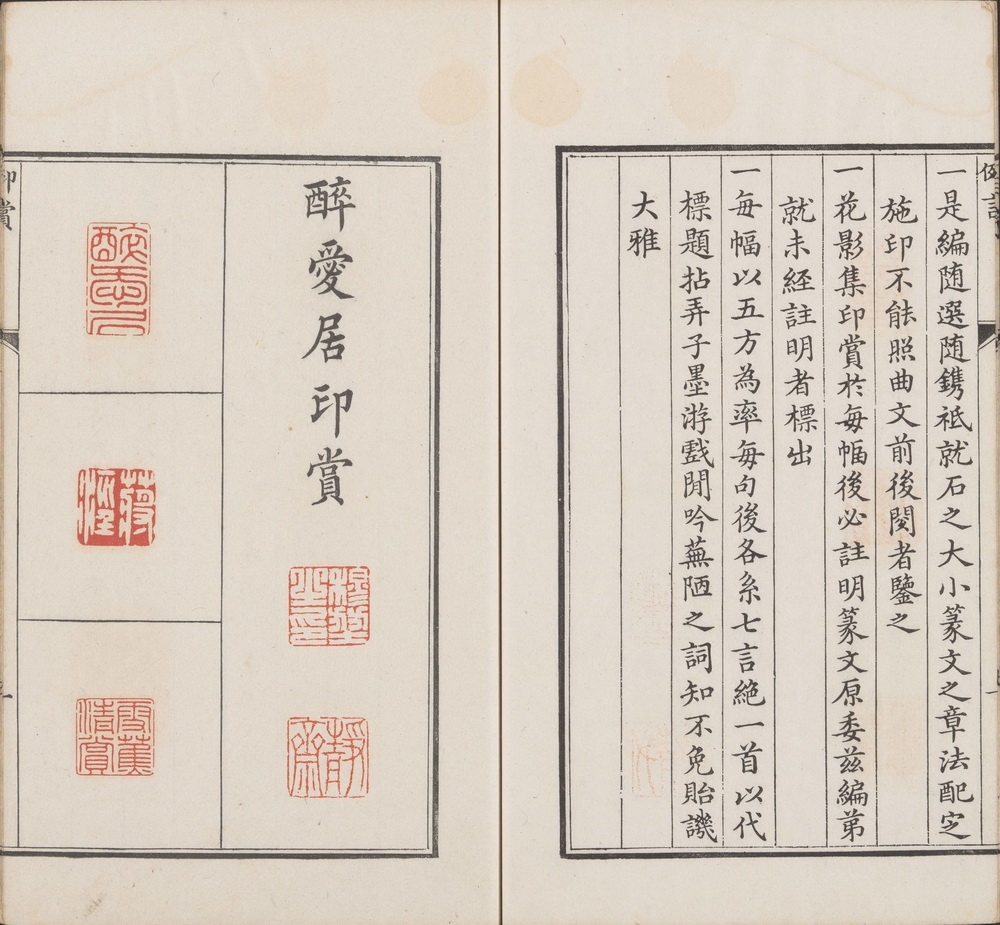 一是編随選随鐫祗就石之大小篆文之章法配定
施印不能照曲文前後閱者鑒之
一花影集印賞於每幅後必註明篆文原委兹編苐
就未經註明者標出
一每幅以五方為率每句後各系七言絶一首以代
標題拈弄子墨游戲閒吟蕪陋之詞知不免貽譏
大雅
醉愛居印賞
靜齋
清賞
印賞